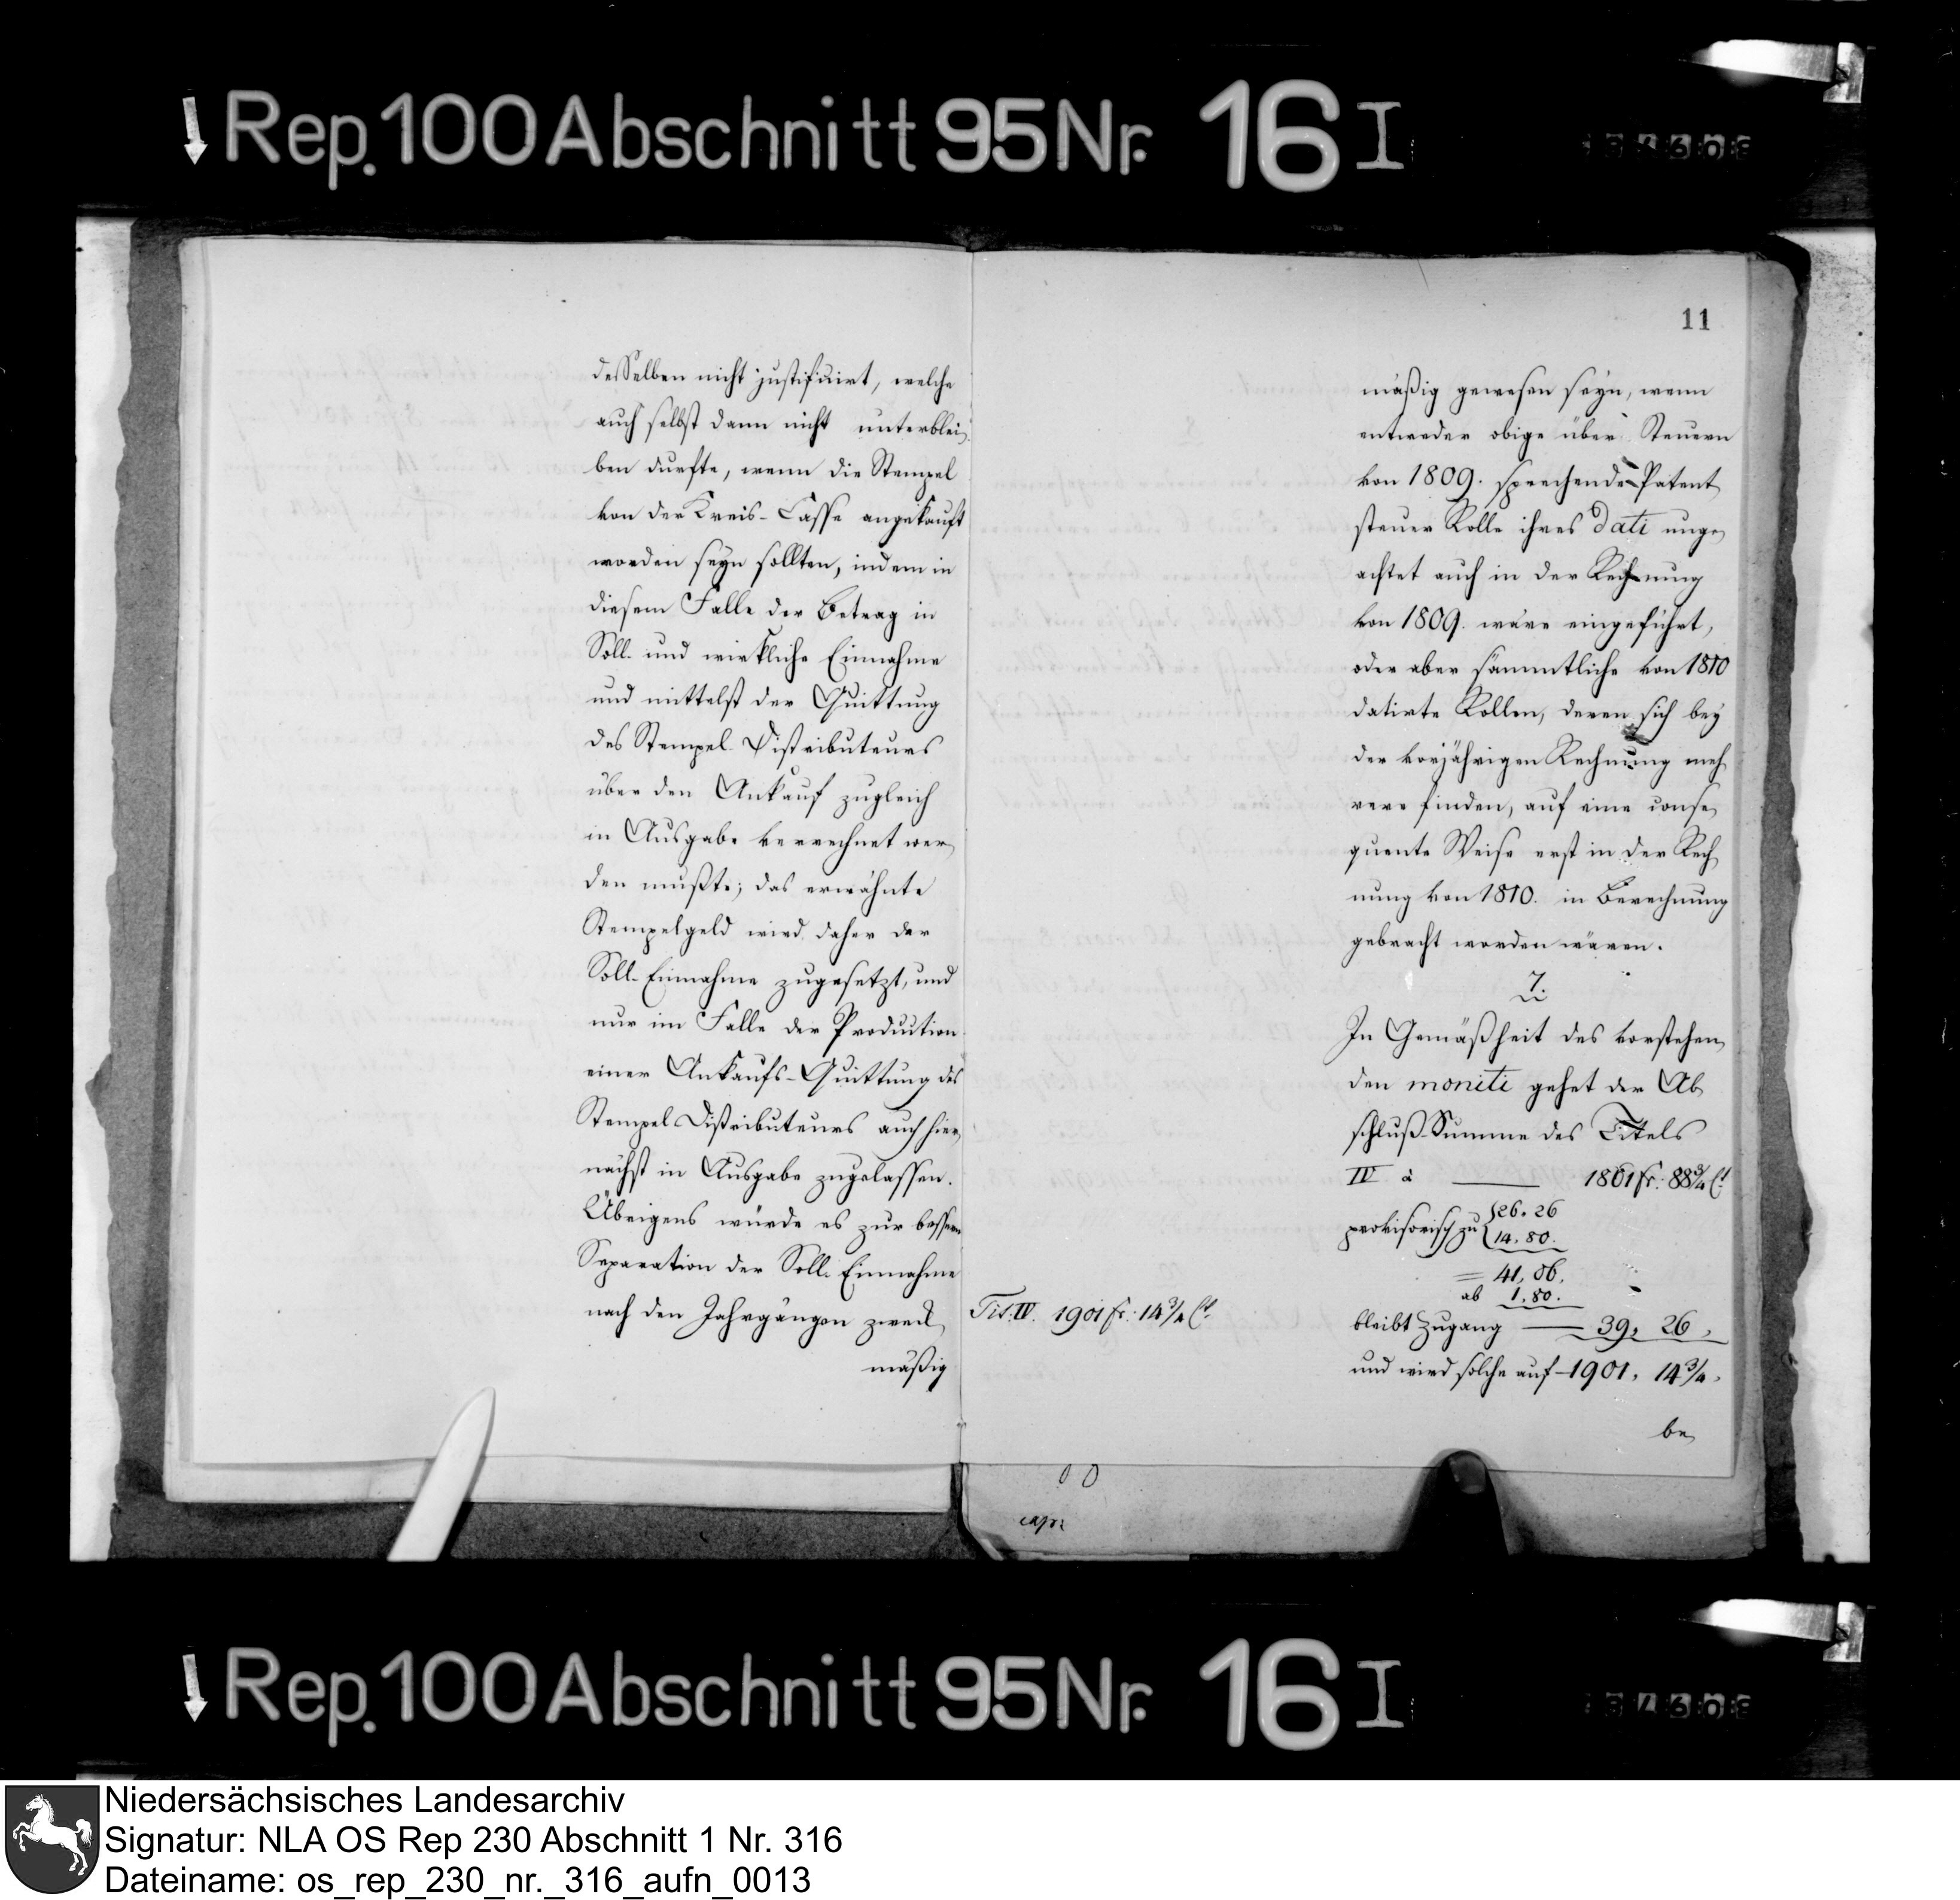 Rep. 100 Abschnitt 95 Nr. 16 I
desselben nicht justificirt, welche
auch selbst dann nicht unterblei,
ben durfte, wenn die Stempel
von der Kreis-Casse angekauft
worden seyn sollten, indem in
diesem Falle der Betrag in
Soll- und wirkliche Einnahme
und mittelst der Quittung
des Stempel-Distributeurs
über den Ankauf zugleich
in Ausgabe verrechnet wer,
den mußte; das erwähnte
Stempelgeld wird daher der
Soll-Einnahme zugesetzt, und
nur im Falle der Production
einer Ankaufs-Quittung des
Stempel Distributeurs auch hier,
nächst in Ausgabe zugelassen.
Übrigens würde es zur bessern
Separation der Soll-Einnahme
nach den Jahrgängen zweck,
mäßig
11
mäßig gewesen seyn, wenn
entweder obige über Steuern
von 1809. sprechende Patent
steuer Rolle ihres dati unge,
achtet auch in der Rechnung
von 1809. wäre eingeführt,
oder aber sämmtliche von 1810
datirte Rollen, deren sich bey
der vorjährigen Rechnung meh,
rere finden, auf eine conse,
quente Weise erst in der Rech,
nung von 1810. in Berechnung
gebracht worden wären.
7.
In Gemäßheit des vorstehen,
den moniti gehet der Ab,
schluß-Summe des Titels
IV à 1861 fr: 88 3/4 Ct.
provisorisch zu 26. 26
14. 80.
= 41, 06.
ab 1. 80.
bleibt Zugang 39, 26,
Tit: IV. 1901 fr: 14 3/4 Ct.
und wird solche auf 1901, 14 3/4,
be,
Rep. 100 Abschnitt 95 Nr. 16 I
Niedersächsisches Landesarchiv
Signatur: NLA OS Rep 230 Abschnitt 1 Nr. 316
Dateiname: os_rep_230_nr._316_aufn_0013